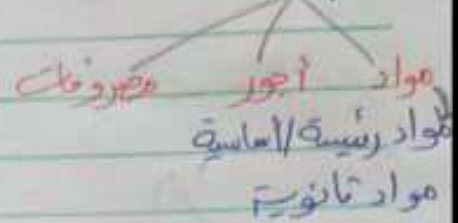 مواد أجور مصروفات
مواد رئيسة/أساسية
مواد ثانوية